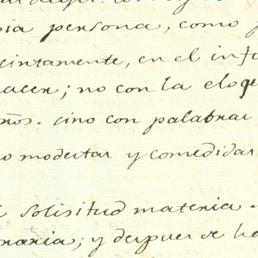 persona, como
cintamente, en el inf
acer; no con la eloq
sino con palabras
o modestas y comedidas
solisitud materia
naria; y despues de ha